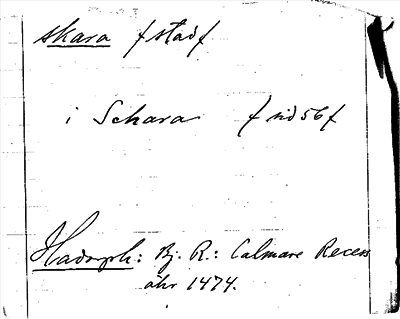 skara f stad f
i Schara f sid 56 f
Hadorph: Bj. R.: Calmare Recess
åhr 1474.